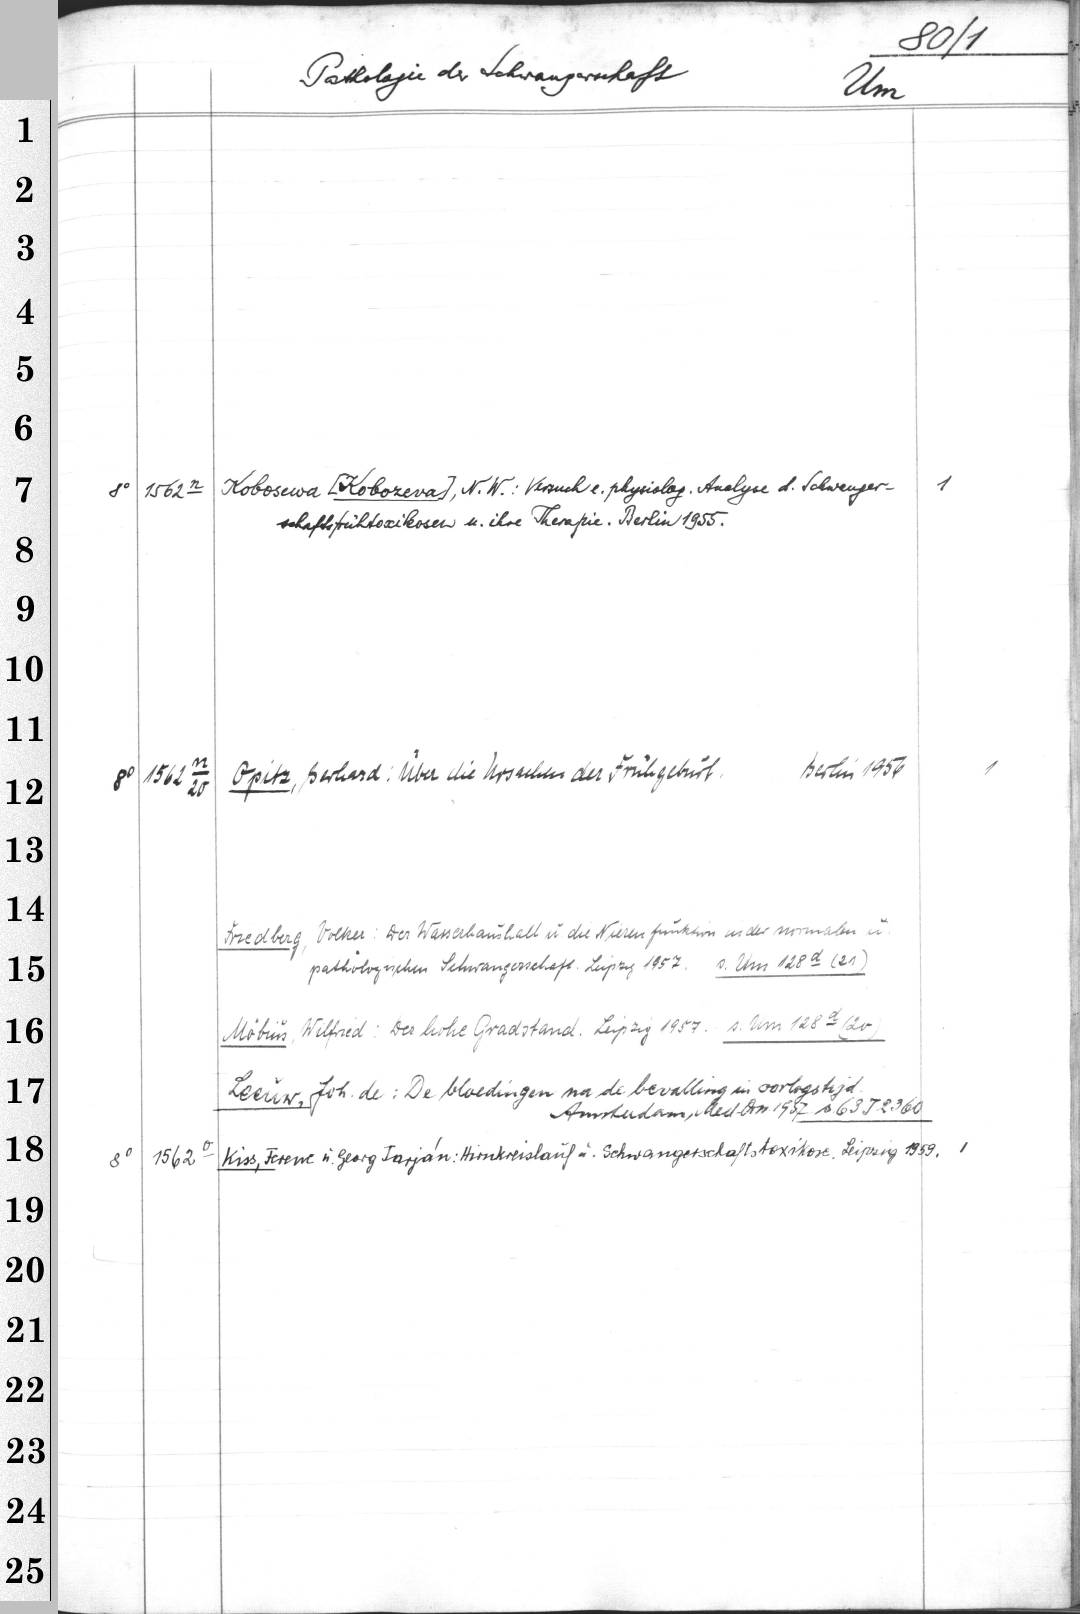 80/1
Pathologie der Schwangerschaft
Um
1
2
3
4
5
6
7
8° 1562 n Kobosewa [Kobozeva], N. W.: Versuch e. physiolog. Analyse d. Schwanger- 1
schaftsfrühtoxikosen u. ihre Therapie. Berlin 1955.
8
9
10
11
8° 1562 n/20 Opitz, Gerhard: Über die Ursachen der Frühgeburt. Berlin 1956 1
12
13
14
Friedberg, Volker: Der Wasserhaushalt u die Nierenfunktion in der normalen u.
15
pathologischen Schwangerschaft. Leipzig 1957. s. Um 128 d (21)
16
Möbius, Wilfried: Der hohe Gradstand. Leipzig 1957. s. Um 128 d (20)
17
Leeuw, Joh. de: De bloedingen na de bevalling in oorlogstijd.
Amsterdam, Med. Diss. 1957 s 63 J 2360
18
8° 1562 o Kiss, Ferenc u. Georg Tarján: Hirnkreislauf u. Schwangerschaftstoxikose. Leipzig 1959. 1
19
20
21
22
23
24
25